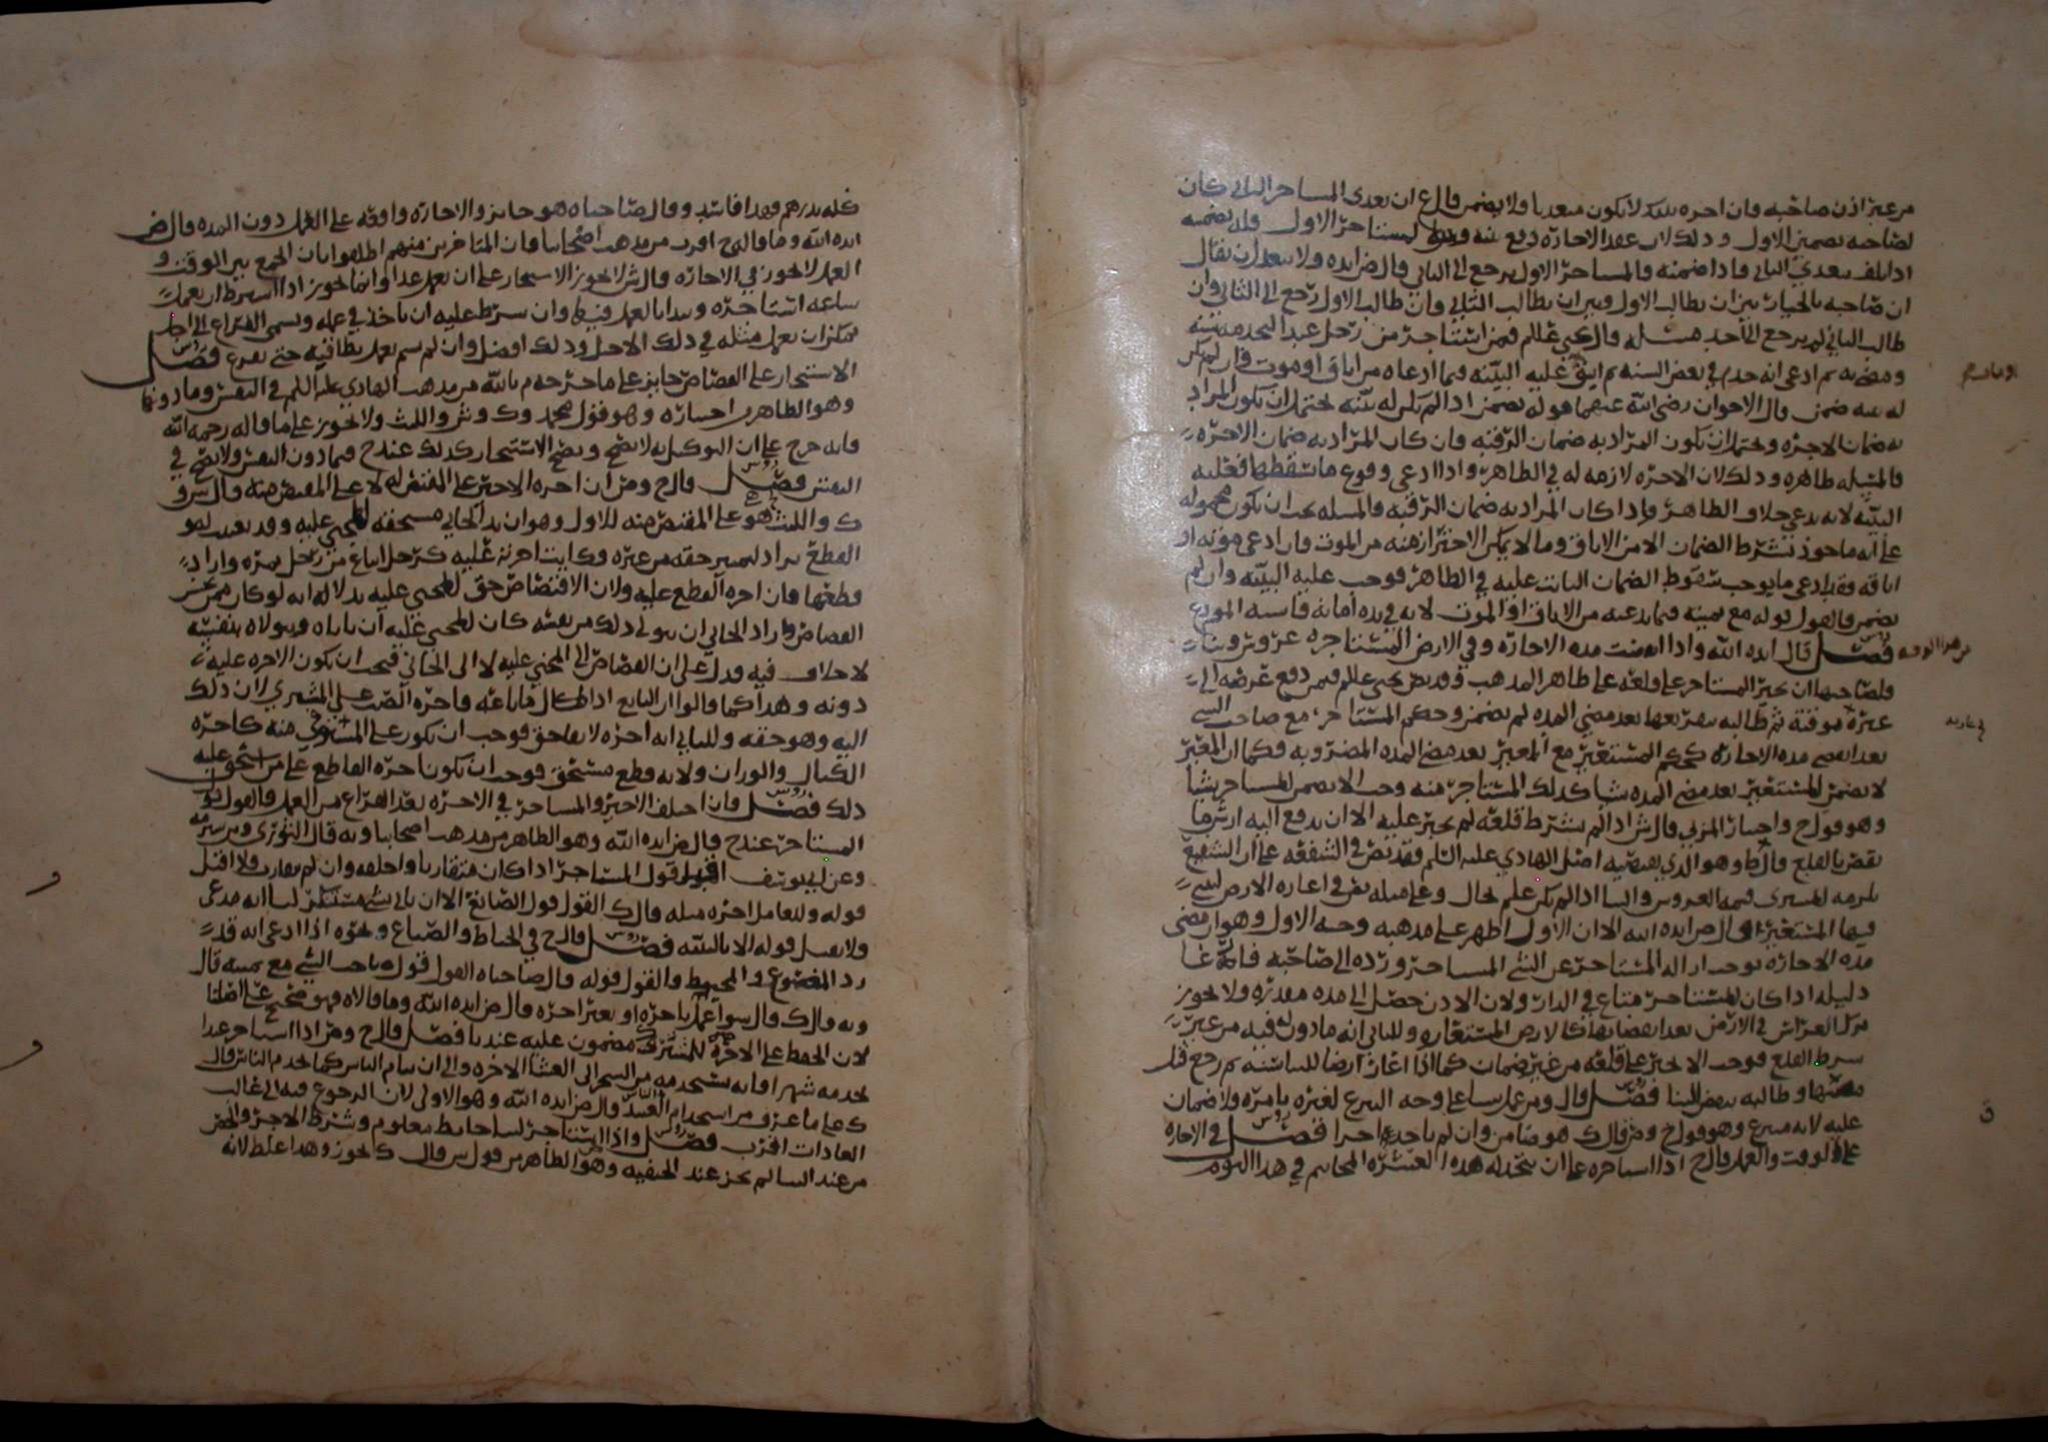 من غير اذن صاحبه فان اجره بذلك لا يكون متعديا ولا يضمن قال ع ان تعدى المستاجر الثاني كان
لصاحبه تضمين الاول وذلك لان عقد الاجارة وقع منه المستاجر الاول وله تضمينه
اذا تلف بتعدي الثاني فاذا ضمنه فالمستاجر الاول يرجع الى الثاني قال ض ايده ولا يبعد ان يقال
ان صاحبه بالخيار بين ان يطالب الاول وبين ان يطالب الثاني وان طالب الاول رجع الى الثاني وان
طالب الثاني لم يرجع الى احد مسله قال يحيى عليلم فمن استاجر من رجل عبدا ليخدمه سنة
ومضى به ثم ادعى انه خدم في بعض السنه ثم ابق عليه البينه فيما ادعاه من اباق او موت فان لم يكن
له بينه ضمن قال الاخوان رضي الله عنهما قوله يضمن اذا لم يكن له بينه يحتمل ان يكون المراد
به ضمان الاجره ويحتمل ان يكون المراد به ضمان الرقبه فان كان المراد به ضمان الاجره
فالمسله ظاهره وذلك لان الاجره لازمه له في الظاهر واذا ادعى وقوع ما يسقطها فعليه
البينه لانه يدعي خلاف الظاهر واذا كان المراد به ضمان الرقبه فالمسله يجب ان تكون محموله
على انه ماخوذ بشرط الضمان الا من الاباق وما لا يمكن الاحتراز منه من الموت فان ادعى موته او
اباقه وقد ادعى ما يوجب سقوط الضمان الثابت عليه في الظاهر فوجب عليه البينه وان لم
يضمن فالقول قوله مع يمينه فيما يدعيه من الاباق او الموت لانه في يده امانه فاشبه المودع
فصل قال ايده الله واذا انقضت مده الاجاره وفي الارض المستاجره غروس وبناء
فلصاحبها ان يجبر المستاجر على قلعه على ظاهر المذهب وقد نص يحيى عليلم فيمن دفع عرصه الى
غيره موقتة ثم طالبه بتفريغها بعد مضي المده لم يضمن وحكم المستاجر مع صاحب الشي
بعد انقضى مده الاجاره كحكم المستعير مع المعير بعد مضي المده المضروبه فكما ان المعير
لا يضمن للمستعير بعد مضي المده شيا كذلك المستاجر منه وجب الا يضمن للمستاجر شيا
وهو قول ح واختيار المزني قال ش اذا لم يشترط قلعه لم يجبر عليه الا ان يدفع اليه ارش ما
نقص بالقلع قال ط وهو الذي يقتضيه اصل الهادي عليه السلم فقد نص في الشفعه على ان الشفيع
يلزمه للمشتري قيمه الغروس والبنا اذا لم يكن علم بحال وعلى مثله نص في اعارة الارض ليبني
فيها المستعير قال ض ايده الله الا ان الاول اظهر على مذهبه وجه الاول وهو ان مضي
مده الاجاره يوجب ازاله المستاجر عن الشي المستاجر ورده الى صاحبه فارغا
دليله اذا كان للمستاجر متاع في الدار ولان الاذن حصل الى مده مقدره ولا يجوز
ترك الغراس في الارض بعد انقضائها كالارض المستعاره وللثاني انه ماذون له فيه من غير
شرط القلع فوجب الا يجبر على قلعه من غير ضمان كما اذا اعار ارضا للبنا سنه ثم رجع قبل
مضيها وطالبه بنقض البنا فصل قال ومن عمل شيا على وجه التبرع لغيره بامره ولا ضمان
عليه لانه متبرع وهو قول ح وص قال ك هو ضامن وان لم ياخذ اجرا فصل في الاجاره
على الوقت والعمل قال ح اذا استاجره على ان يتخذ له هذه العشره المخاتيم في هذا اليوم
في عاريه
ق
كله بدرهم فهذا فاسد وقال صاحباه هو جائز والاجاره واقعه على العمل دون المده قال ض
ايده الله وما قاله ح اقرب من مذهب اصحابنا فان المتاخرين منهم اطلقوا بان الجمع بين الوقت و
العمل لا يجوز في الاجاره قال ش لا يجوز الاستيجار على ان يعمل غدا وانما يجوز اذا اشترط ان يعمل
ساعه استاجره وبدا بالعمل فيه وان شرط عليه ان ياخذ في عمله ويسمى الفراغ الى اجل
يمكن ان يعمل مثله في ذلك الاجل وذلك افضل وان لم يسم يعمل بطاقته حتى يفرغ فصل
الاستيجار على القصاص جايز على ما خرجه م بالله من مذهب الهادي عليه السلم في النفس وما دونها
وهو الظاهر من اختياره وهو قول محمد وك وش والليث ولا يجوز على ما قاله رحمه الله
فانه خرج على ان التوكيل به لا يصح ويصح الاستيجار كذلك عند ح فيما دون النفس ولا يصح في
النفس فصل قال ح وص ان اجره الاجير على المقتص له لا على المقتص منه قال ش و
ك والليث هو على المقتص منه للاول وهو ان يد الجاني مستحقه للمجني عليه وقد تعينت لهو
القطع يراد لتمييز حقه من غيره وكانت اجرته عليه كرجل ابتاع من رجل ثمره واراد
قطعها فان اجره القطع عليه ولان الاقتصاص حق للمجني عليه بدلاله انه لو كان ممن يحسن
القصاص واراد الجاني ان يولي ذلك من يعينه كان للمجني عليه ان ياباه ويتولاه بنفسه
لا خلاف فيه فدل على ان القصاص الى المجني عليه لا الى الجاني فيجب ان تكون الاجره عليه
دونه وهذا كما قالوا ان البايع اذا كال ما باعه فاجره الصب على المشتري لان ذلك
اليه وهو حقه وللثاني انه اجره لايفا حق فوجب ان تكون على المستوفى منه كاجره
الكيال والوزان ولانه قطع مستحق فوجب ان تكون اجره القاطع على من استحق عليه
ذلك فصل فان اختلف الاجير والمستاجر في الاجره بعد الفراغ من العمل فالقول قول
المستاجر عند ح قال ض ايده الله وهو الظاهر من مذهب اصحابنا وبه قال الثوري وابن شبرمه
وعن ابي يوسف اقبل قول المستاجر اذا كان متقاربا واحلفه وان لم يتقارب فلا اقبل
قوله وللعامل اجره مثله قال ك القول قول الصانع الا ان ياتي بشي مستنكر لنا انه مدعى
ولا يقبل قوله الا بالبينه فصل قال ح في الخياط والصباغ ونحوه اذا ادعى انه قد
رد المصنوع والمخيط فالقول قوله قال صاحباه القول قول صاحب الشي مع يمينه قال
وبه قال ك قال سوا عمله باجره او بغير اجره قال ض ايده الله وما قالاه فهو صحيح على اصلنا
لان الحفظ على الاجير المشترك مضمون عليه عندنا فصل قال ح وص اذا استاجر عبدا
يخدمه شهرا فانه يستخدمه من السحر الى العشا الاخره والى ان ينام الناس كما يخدم الناس قال
ك على ما عرف من استخدام العبيد قال ض ايده الله وهو الاولى لان الرجوع فيه الى غالب
العادات اقرب فصل واذا استاجر لبنا حايط معلوم وشرط الاجر والجص
من عند البنا لم يجز عند الحنفيه وهو الظاهر من قول ش قال ك يجوز وهذا غلط لانه